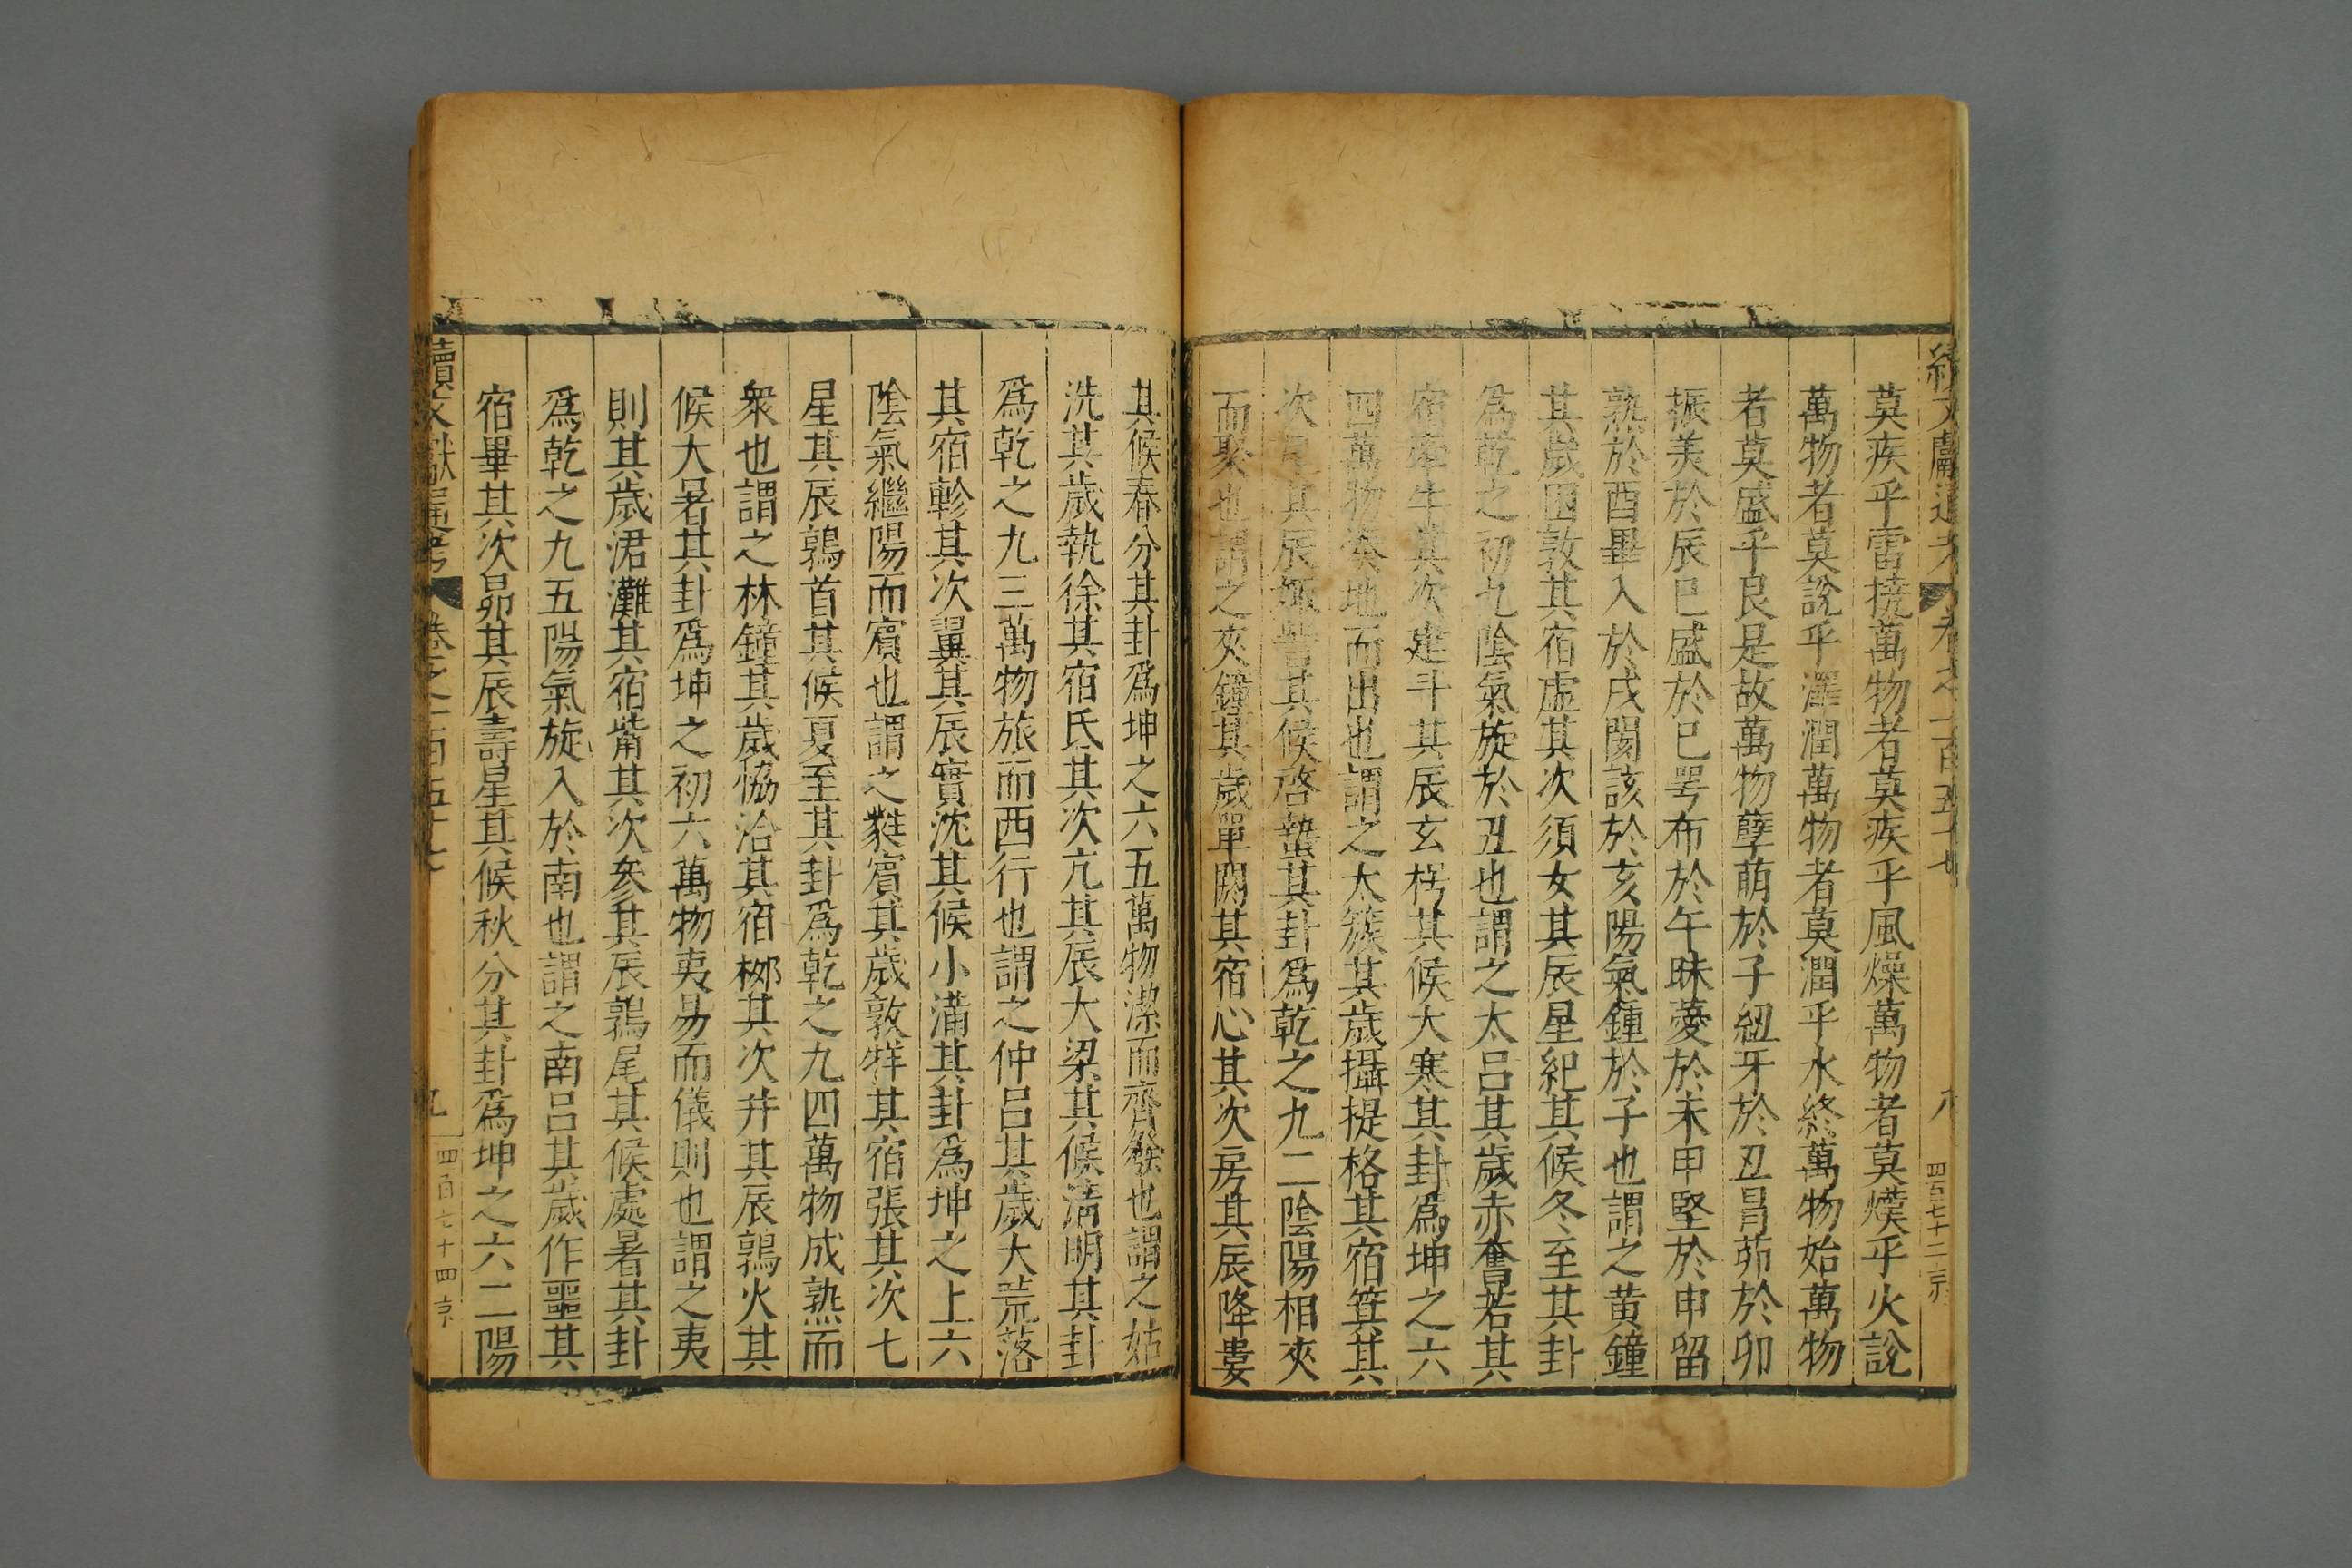 續文獻通考 卷之一百五十七 八 四百七十二 京
莫疾乎雷撓萬物者莫疾乎風燥萬物者莫熯乎火說
萬物者莫說乎澤潤萬物者莫潤乎水終萬物始萬物
者莫盛乎艮是故萬物孽萌於子紐牙於丑冒茆於卯
振羙於辰巳盛於巳咢布於午昧薆於未申堅於申留
熟於酉畢入於戌閡該於亥陽氣鍾於子也謂之黃鐘
其歲困敦其宿虛其次須女其辰星紀其候冬至其卦
爲乾之初九陰氣旋於丑也謂之太呂其歲赤奮若其
宿牽牛其次建斗其辰玄枵其候大寒其卦爲坤之六
四萬物湊地而出也謂之太簇其歲攝提格其宿箕其
次尾其辰娵訾其候啓蟄其卦爲乾之九二陰陽相夾
而聚也謂之夾鐘其歲單閼其宿心其次房其辰降婁
其候春分其卦爲坤之六五萬物潔而齊發也謂之姑
洗其歲執徐其宿氐其次亢其辰大梁其候清明其卦
爲乾之九三萬物旅而西行也謂之仲呂其歲大荒落
其宿軫其次翼其辰實沈其候小滿其卦爲坤之上六
陰氣繼陽而賓也謂之蕤賓其歲敦牂其宿張其次七
星其辰鶉首其候夏至其卦爲乾之九四萬物成熟而
衆也謂之林鐘其歲恊洽其宿栁其次井其辰鶉火其
候大暑其卦爲坤之初六萬物夷易而儀則也謂之夷
則其歲涒灘其宿觜其次參其辰鶉尾其候處暑其卦
爲乾之九五陽氣旋入於南也謂之南呂其歲作噩其
宿畢其次昴其辰壽星其候秋分其卦爲坤之六二陽
續文獻通考 卷之一百五十七 九 四百七十四 京